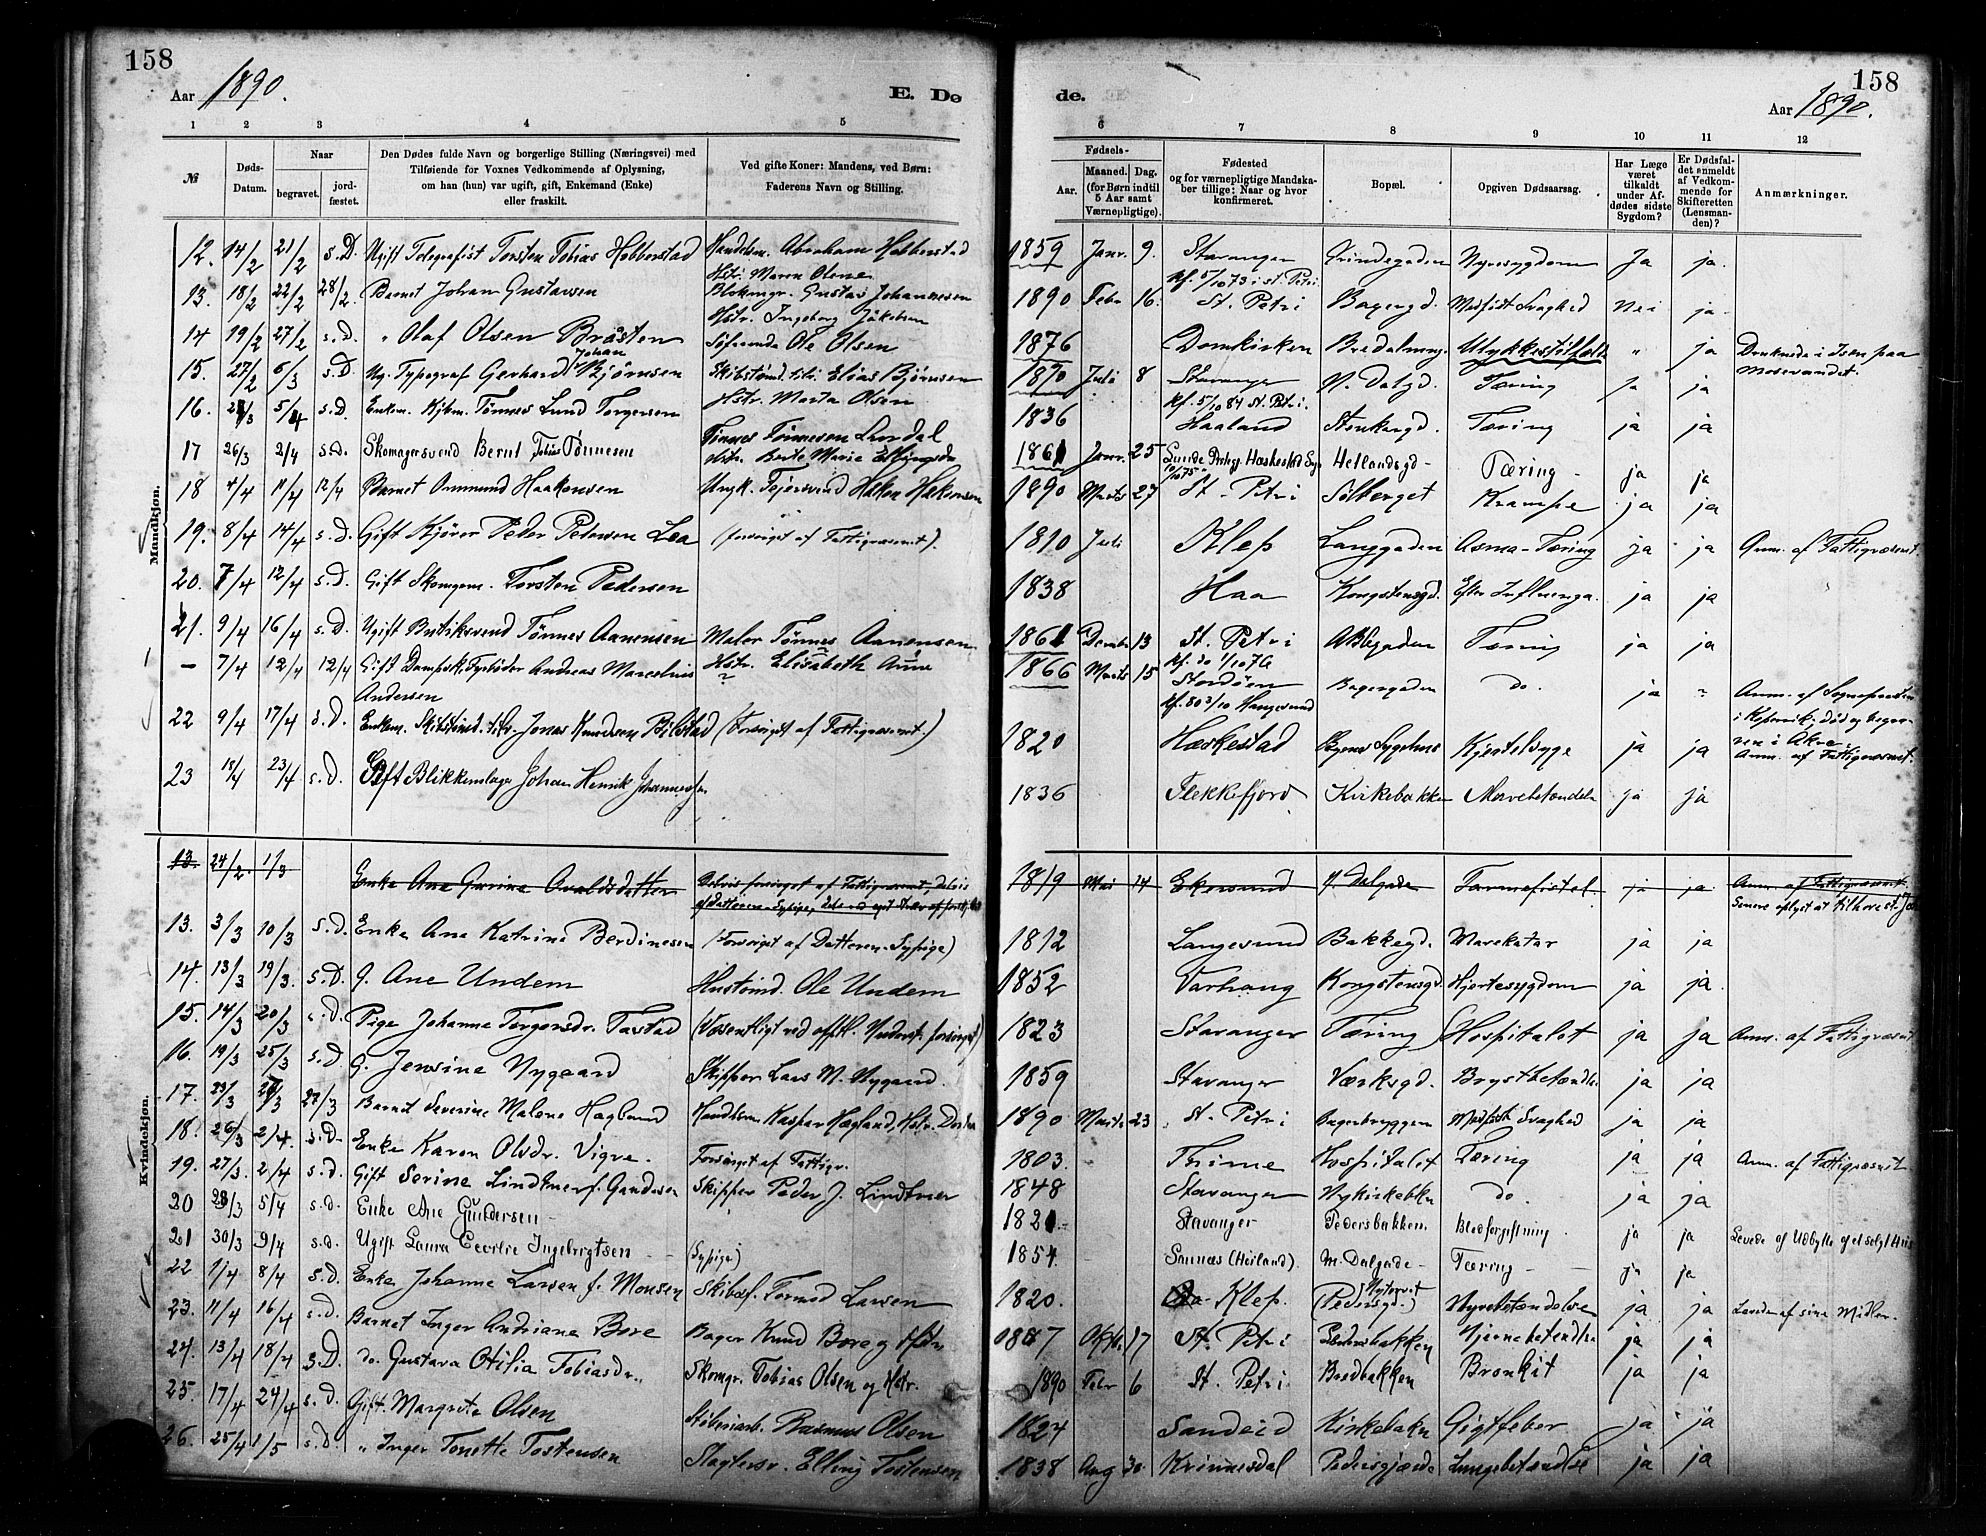 158
Aar 1890.
E. Dø
1 2 3 4 5
№
Døds-Datum.
Naar
begravet.
jord-fæstet.
Den Dødes fulde Navn og borgerlige Stilling (Næringsvei) med
Tilføiende for Voxnes Vedkommende af Oplysning,
om han (hun) var ugift, gift, Enkemand (Enke)
eller fraskilt.
Ved gifte Koner: Mandens, ved Børn:
Faderens Navn og Stilling.
Mandkjøn.
12. 14/2 21/2 s.D. Ugift Telegrafist Torsten Tobias Hobberstad Handelsm. Abraham Hobberstad
Hstr. Maren Olene
13. 18/2 22/2 28/2. Barnet Johan Gustavsen Blokmgr. Gustav Johannesen
Hstr. Ingeborg Jakobsen
14 19/2 27/2 s.D. " Olaf Olsen Bråsten Ole Olsen
15. 27/2 6/3 s.D. Ug. Typograf Gerhard Johan Bjørnsen Skibstømd. Elias Bjørnsen
Hstr. Marta Olsen
16. 5/4 s.D. Enkem. Tønnes Lund Torgersen
17 26/3 2/4 s.D. Skomagersvend Bernt Tobias Tønnesen Tønnes Tønnesen
Hstr. Berte Marie
18 4/4 11/4 12/4 Barnet Ommund Haakonsen Ungk. Hakon Hakonsen
19. 8/4 14/4 s.D. Gift Kjører Peder Petersen Lea (forsørget af Fattigvæsnet).
20. 7/4 12/4 s.D. Gift Skomgem. Torsten Pedersen
21. 9/4 16/4 s.D. Ugift Butiksvend Tønnes Aanensen Maler Tønnes Aanensen
Hstr. Elisabeth Anne
— 7/4 12/4 12/4 Gift Dampsk. Fyrbøder Andreas Marcelius ?
Andersen
22 9/4 17/4 s.D. Enkem. Skibstømd. Jonas Knudsen Bilstad (Forsørget af Fattigvæsnet.)
23 15/4 23/4 s.D. Gift Blikkenslager Johan Henrik Johannessen
Kvindekjøn.
13. 24/2. 1/3 Enke Ane Gurine Osvaldsdatter Delvis forsørget af Fattigvæsnet, delvis
af Datteren - Sypige,
13. 3/3 10/3 s.D. Enke Ane Katrine Berdinesen (Forsørget af Datteren. Sypige)
14. 13/3 19/3. s.D. G. Ane Undem Hustømd. Ole Undem
15. 14/3 20/3 s.D. Pige Johanne Torgersdr. Tastad (Væsentligt ved offtl. Underst. forsørget)
16. 19/3 25/3 s.D. G. Jensine Nygaard Skipper Lars M. Nygaard.
17. 23/3 27/3 Barnet Severine Malene Høglund Handlsm Kaspar Høgland, Hstr.
18. 26/3 2/4. s.D. Enke Karen Olsdr. Vigre. Forsørget af Fattigv.
19. 27/3. 2/4 s.D. Gift Serine Lindtner f. Gundersen Skipper Peder J. Lindtner
20 28/3 5/4 s.d. Enke Ane Gundersen
21 30/3 9/4 s.d. Ugift Laura Cecilie Ingebrigtsen (Sypige)
22 1/4 8/4 s.d. Enke Johanne Larsen f. Monsen Skibsf. Tormod Larsen
23. 11/4 16/4 s.D. Barnet Inger Andriane Bore Bager Knud Bore og Hstr
24. 13/4 18/4 s.D. do. Gustava Otilia Tobiasdr. Skomgr. Tobias Olsen og Hstr.
25. 17/4 24/4 s.d. Gift. Margrete Olsen Støberiarb. Rasmus Olsen
26. 25/4 1/5 s.d. " Inger Tonette Tostensen Slagtersv. Elling Tostensen
158
de.
Aar 1890.
6 7 8 9 10 11 12
Fødsels-
Aar.
Maaned. Dag.
(for Børn indtil
5 Aar samt
Værnepligtige).
Fødested
og for værnepligtige Mandska-
ber tillige: Naar og hvor
konfirmeret.
Bopæl.
Opgiven Dødsaarsag.
Har Læge
været
tilkaldt
under Af-
dødes sidste
Sygdom?
Er Dødsfal-
det anmeldt
af Vedkom-
mende for
Skifteretten
(Lensman-
den)?
Anmærkninger.
1859 Janr. 9. Stavanger Nyresygdom Ja ja.
kf. 5/10 73 i St. Petri
1890. Febr 16. St. Petri Bagergd. Medfødt Svaghed Nei ja
1876 Domkirken Ulykkestilfælde " ja Druknede i Isen paa
Mosevandet.
1870 Juli 8 Stavanger N. Dalgd. Tæring ja ja
kf. 5/10 84 St. Petri.
1836 Haaland Stenkargd. Tæring ja ja
1861 Janr. 25 Hetlandsgd - Tæring - ja ja
1890 Marts 27 St. Petri Sølberget Krampe ja ja
1810 Juli Klep Langgaden Asma-Tæring ja ja Anm. af Fattigvæsnet.
1838 Haa Kongstensgd. Efter Influenza. ja ja
1861 Decmbr 13 St. Petri Tæring ja ja
1866 Marts 15 Stordøen Bagergaden do. ja " Anm. af Sognepræsten
i Kopervik, død og begra-
ven i Akre.
1820 Heskestad Byens Sygehus Hjertesyge ja ja Anm. af Fattigvæsnet.
1836 Flekkefjord Kirkebakken Mavebetændelse ja ja
1819 Mai 14 Ekersund N. Dalgade Tarmefistel. ja ja Anm. af Fattigvæsnet.
Senere oplyst at tilhøre St.
1812 Langesund Bakkegd. Mavekatar ja ja
1852 Varhaug Kongstensgd. Hjertesygdom ja ja
1823 Stavanger Tæring Hospitalet ja ja Anm. af Fattigvæsnet
1859 Stavanger Værksgd. Brystbetændelse ja ja
1890 Marts 23 St. Petri Bagerbryggen Medfødt Svaghed ja ja
1803. Thime Hospitalet Tæring ja ja Anm. af Fattigvæsnet
1848 Stavanger Nykirkebkn do. ja ja
1821. Stavanger Pedersbakken. Blodforgiftning ja ja Levede af Udbytte af et solgt Hus
1854. Sannæs (Høiland). M. Dalgade - Tæring - ja ja
1820. Klep. Nytorvet (Pedersgd.) Nyrebetændelse ja ja Levede af sine Midler.
1887 Oktbr 17 St. Petri Pedersbakken Hjernebetændelse ja ja
1890 Febr 6 St. Petri Bredbakken Bronkit ja ja
1824 Sandeid Kirkebakn Gigtfeber ja ja
1838 Aug 30. Kvinnesdal Pedersgjærde Lungebetændelse ja ja